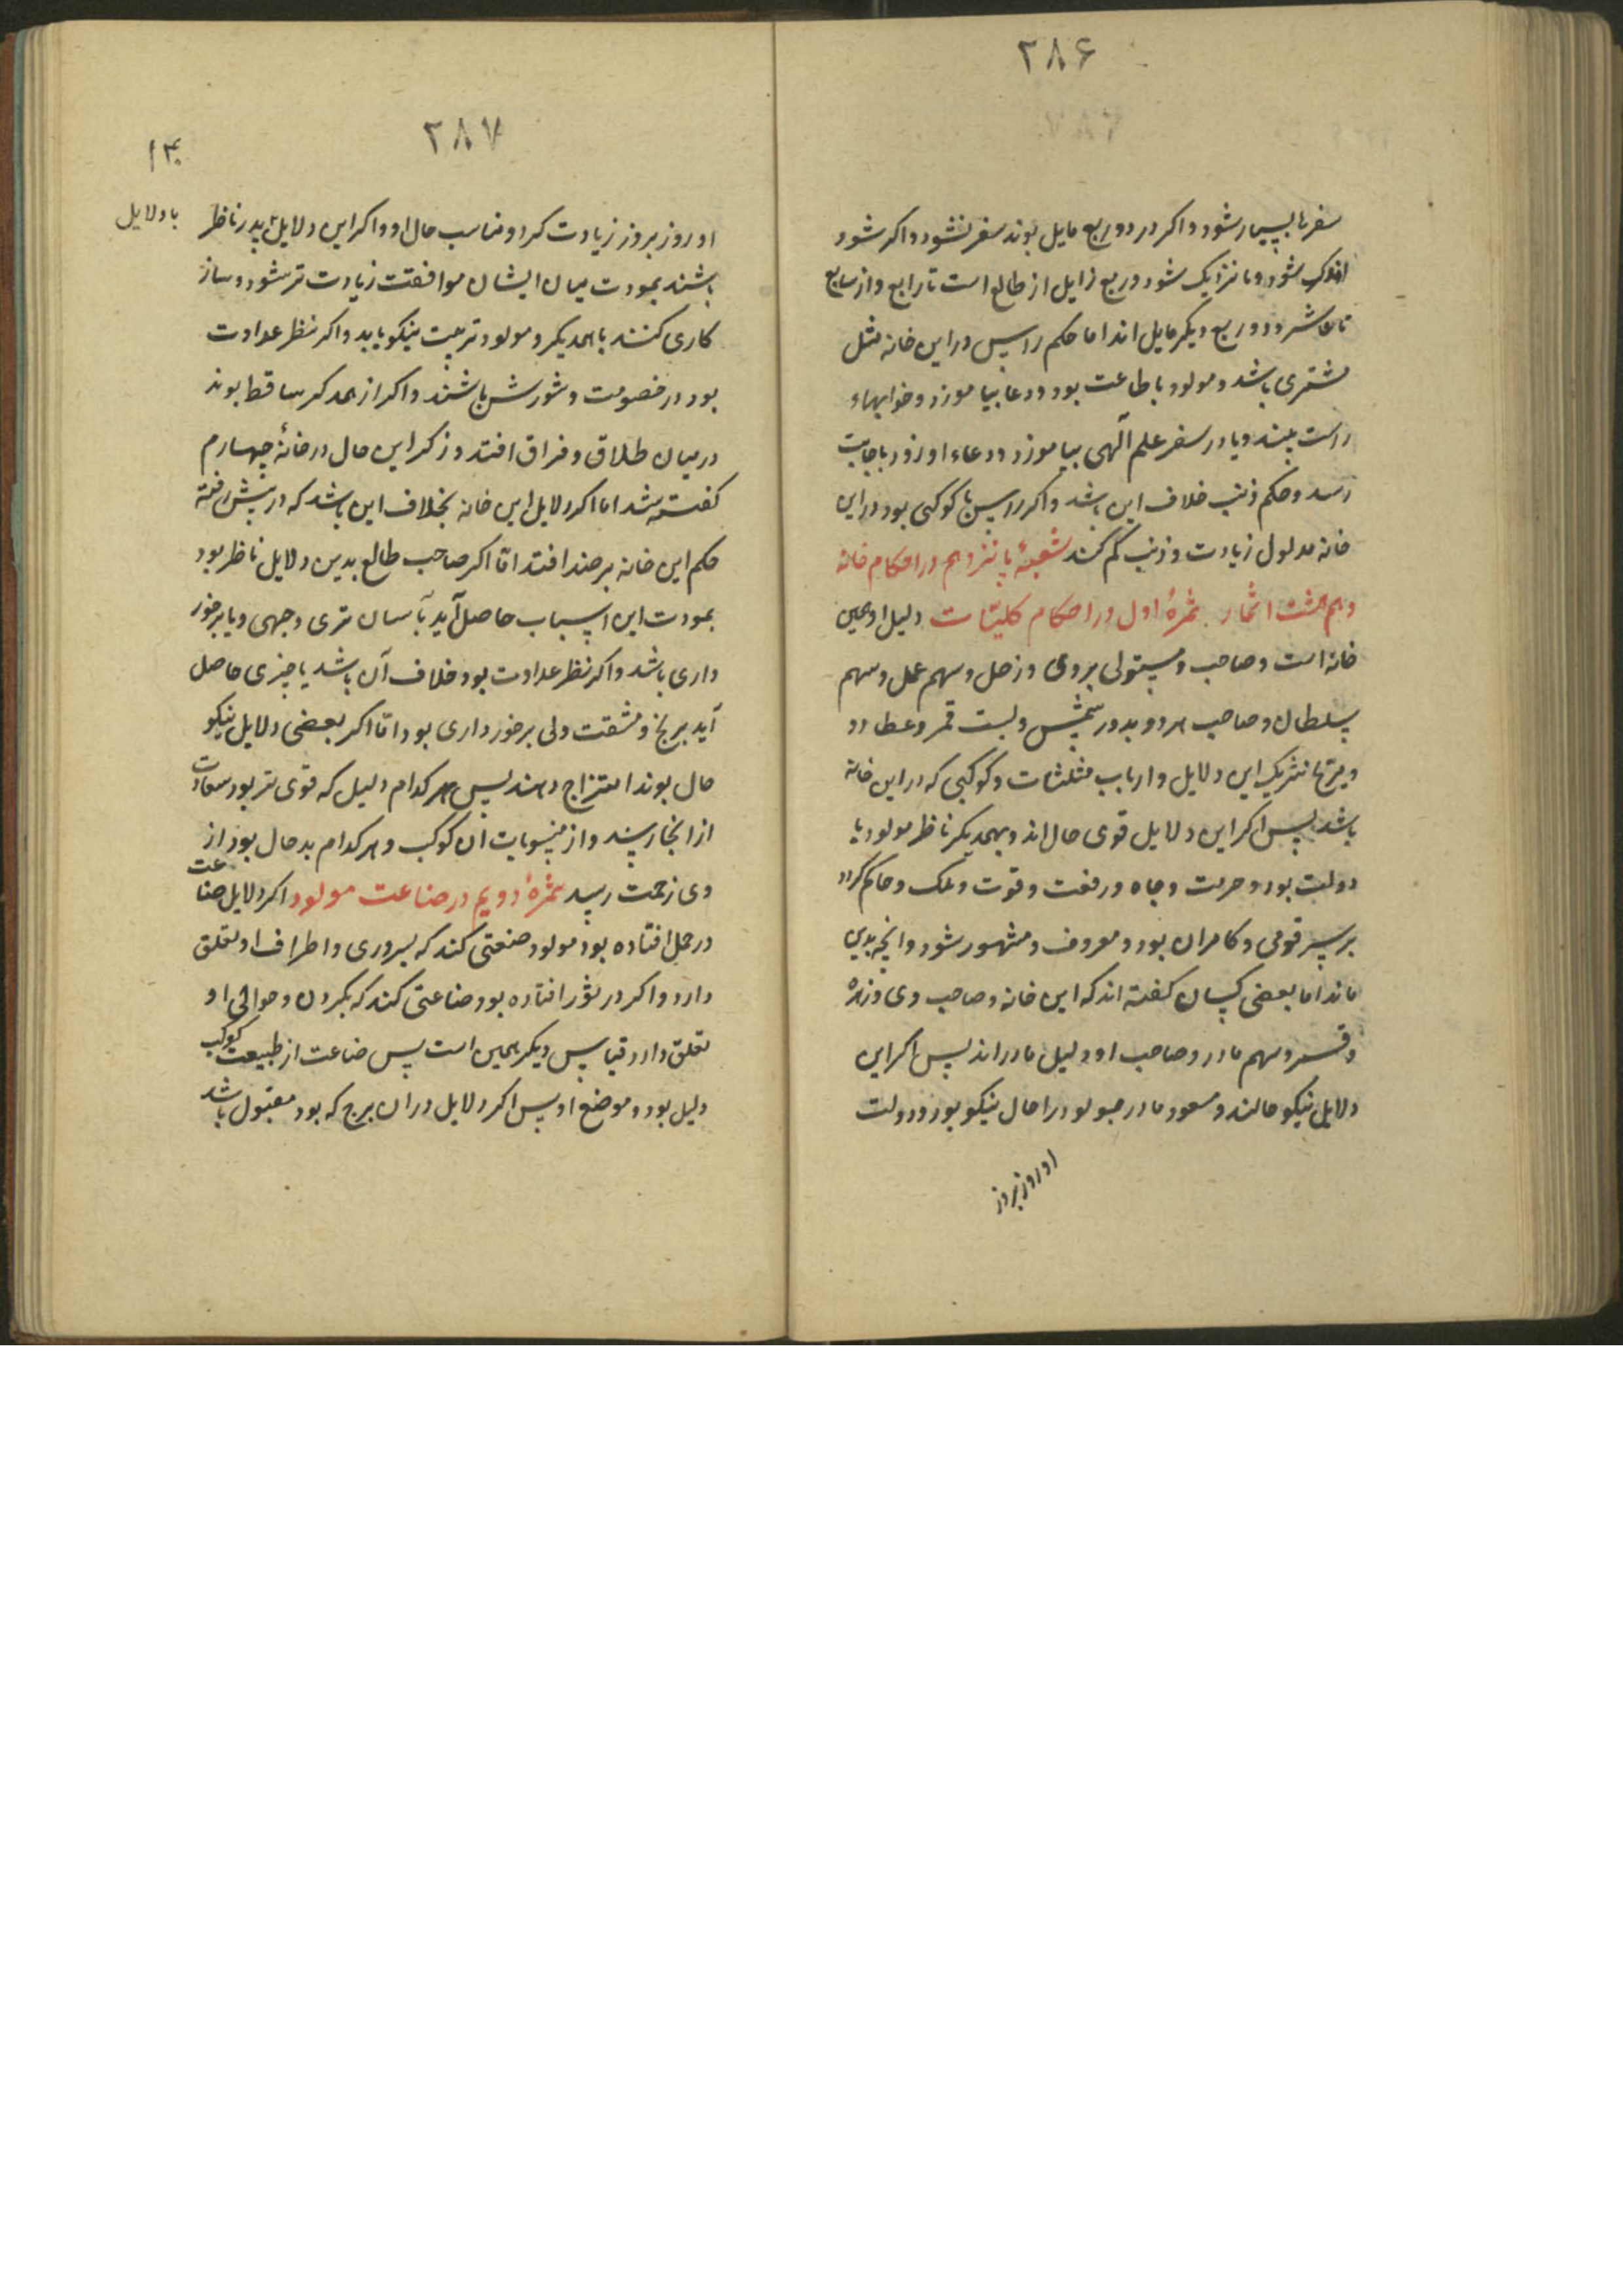 ۲۸۶
سفرها بسیار شود و اکر در دو ربع مایل بوند سفر نشود و اکر شود
اندک شود و با نزدیک شود و ربع زایل از طالع است تا رابع و از سابع
تا عاشر و دو ربع دیکر مایل اند اما حکم راس در این خانه مثل
مشتری باشد و مولود با طاعت بود و دعا بیاموزد و خوابهاء
راست بیند و یا در سفر علم آلهی بیاموزد و دعاء او زود باجابت
رسد و حکم ذنب خلاف این باشد و اکر راس با کوکبی بود در این
خانه مدلول زیادت و ذنب کم کند شعبهٔ پانزدهم در احکام خانهٔ
دهم هشت اثمار ثمرهٔ اول در احکام کلیات دلیل او همین
خانه است و صاحب و مستولی بر وی و زحل و سهم عمل و سهم
سلطان و صاحب هر دو بدو رسمش و بست قمر و عطارد
و مریخ شریک این دلایل و ارباب مثلثات و کوکبی که در این خانه
باشد پس اکر این دلایل قوی حال اند و بهمدیکر ناظر مولود با
دولت بود و حرمت و جاه و رفعت و قوت و ملک و حاکم کردد
بر سر قومی و کامران بود و معروف و مشهور شود و انچه بدین
ماند اما بعضی کسان کفته اند که این خانه و صاحب وی و زهره
و قمر و سهم مادر و صاحب او دلیل مادر اند پس اکر این
دلایل نیکو حالند و مسعود مادر مولود را حال نیکو بود و دولت
او روز بروز
۲۸۷
۱۴۰
او روز بروز زیادت کردد مناسب حال او و اکر این دلایل پدر ناظر
با دلایل
باشند بمودت میان ایشان موافقت زیادت تر شود و ساز
کاری کنند با همدیکر و مولود تربیت نیکو یابد و اکر نظر عداوت
بود در خصومت و شورش باشند و اکر از همدکر ساقط بوند
در میان طلاق و فراق افتد و ذکر این حال در خانهٔ چهارم
کفته شد اما اکر دلایل این خانه بخلاف این باشد که در پیش رفته
حکم این خانه بر ضد افتد امّا اکر صاحب طالع بدین دلایل ناظر بود
بمودت این اسباب حاصل آید بآسان تری وجهی و یا برخور
داری باشد و اکر نظر عداوت بود خلاف آن باشد یا چیزی حاصل
آید برنج و مشقت ولی برخورداری بود امّا اکر بعضی دلایل نیکو
حال بوند امتزاج دهند پس هر کدام دلیل که قوی تر بود سعادت
از انجا رسد و از منسوبات ان کوکب و هر کدام بد حال بود از
وی زحمت رسد ثمرهٔ دویم در صناعت مولود اکر دلایل صناعت
در حمل افتاده بود مولود صنعتی کند که بسروری و اطراف او تعلق
دارد و اکر در ثور افتاده بود صناعتی کند که بکردن و حوالی او
تعلق دارد قیاس دیکر همین است پس صناعت از طبیعت کوکب
دلیل بود و موضع او پس اکر دلایل در ان برج که بود مقبول باشد